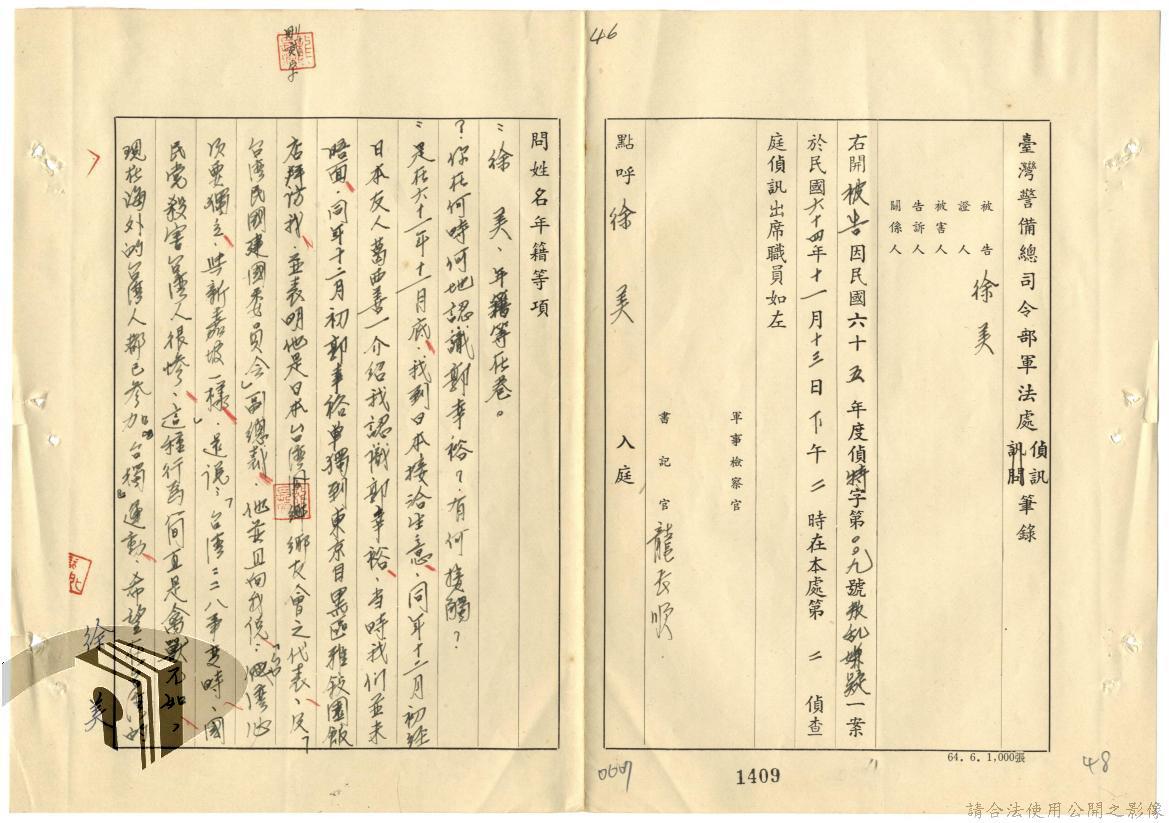 46
臺灣警備總司令部軍法處偵訊訊問筆錄
被告
證人
被害人
告訴人
關係人
徐美
右開被告因民國六十五年度偵特字第00九號叛乱嫌疑一案
於民國六十四年十一月十三日下午二時在本處第二偵查
庭偵訊出席職員如左
軍事檢察官
書記官 龍長順
點呼 徐美 入庭
64. 6. 1,000張
48
1409
0607
問姓名年籍等項
：徐美、年籍等在卷。
？你在何時何地認識郭幸裕？有何接觸？
：是在六十一年十一月底，我到日本接洽生意，同年十二月初経
日本友人葛西善一介紹我認識郭幸裕，当時我们並未
晤面，同年十二月初郭幸裕单獨到東京目黑區雅敍園飯
店拜訪我，並表明他是日本台湾同鄉友會之代表、及「
台湾民國建國委员会」副總裁，他並且向我説：「台湾必
須要獨立，與新嘉坡一樣」，是说：「台湾二二八事变時，國
民党殺害台湾人很慘，這種行為简直是禽獸不如，
現在海外的台湾人都已参加『台獨』運動，希望
徐美
請合法使用公開之影像